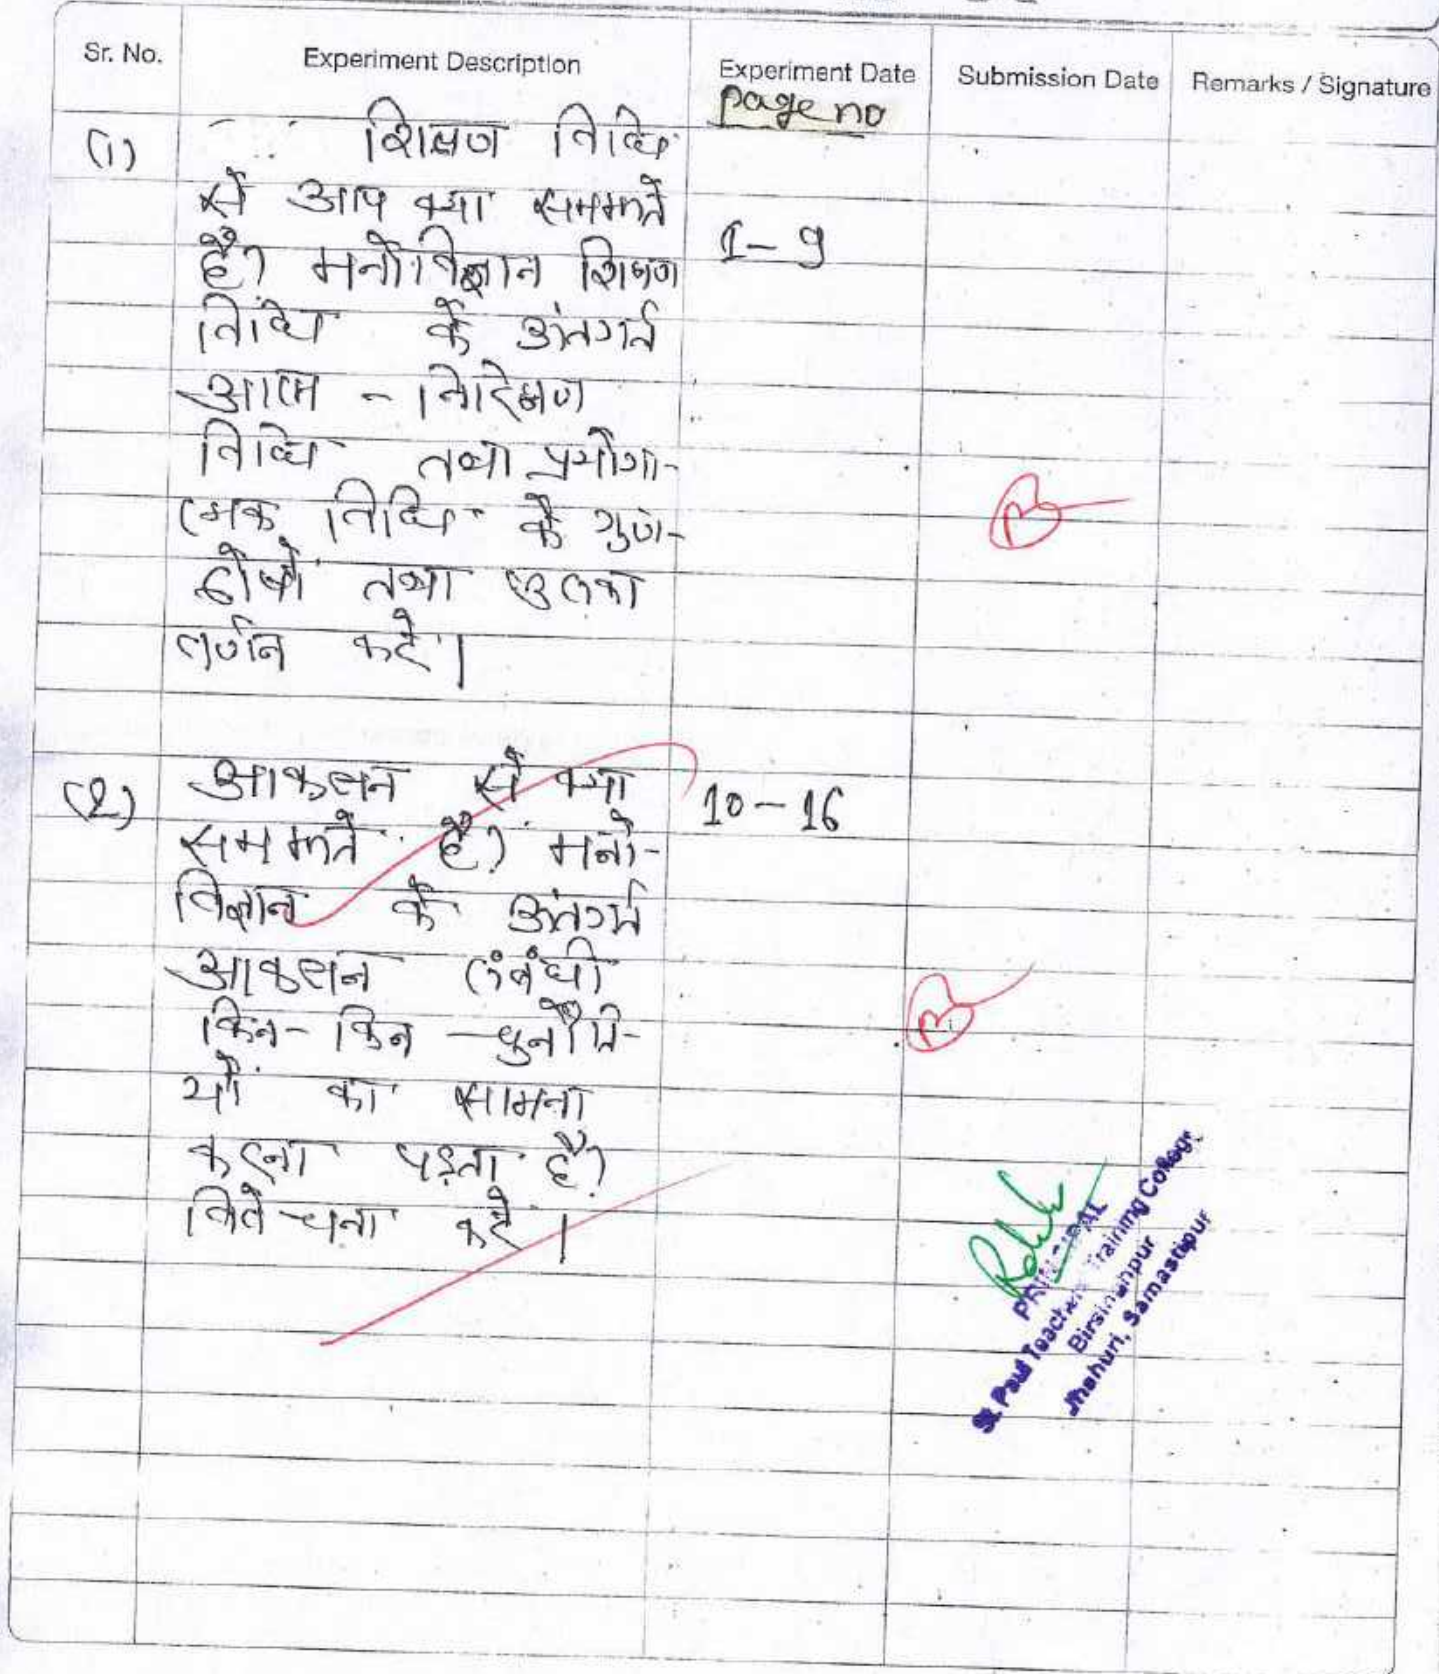 Sr. No. Experiment Description Experiment Date Submission Date Remarks / Signature
page no
(1) शिक्षण विधि
से आप क्या समझते
है? मनोविज्ञान शिक्षण 1-9
विधि के अंतर्गत
आत्म - निरिक्षण
विधि तथा प्रयोगा-
त्मक विधि के गुण-
दोषों तथा उसका
वर्णन करें।
(2) आकलन से क्या 10-16
समझते है? मनो-
विज्ञान के अंतर्गत
आकलन संबंधी
किन-किन चुनौति-
यों का सामना
करना पड़ता है?
विवेचना करें।
PRINCIPAL
St. Paul Teachers Training College
Birsinghpur
Jhahuri, Samastipur